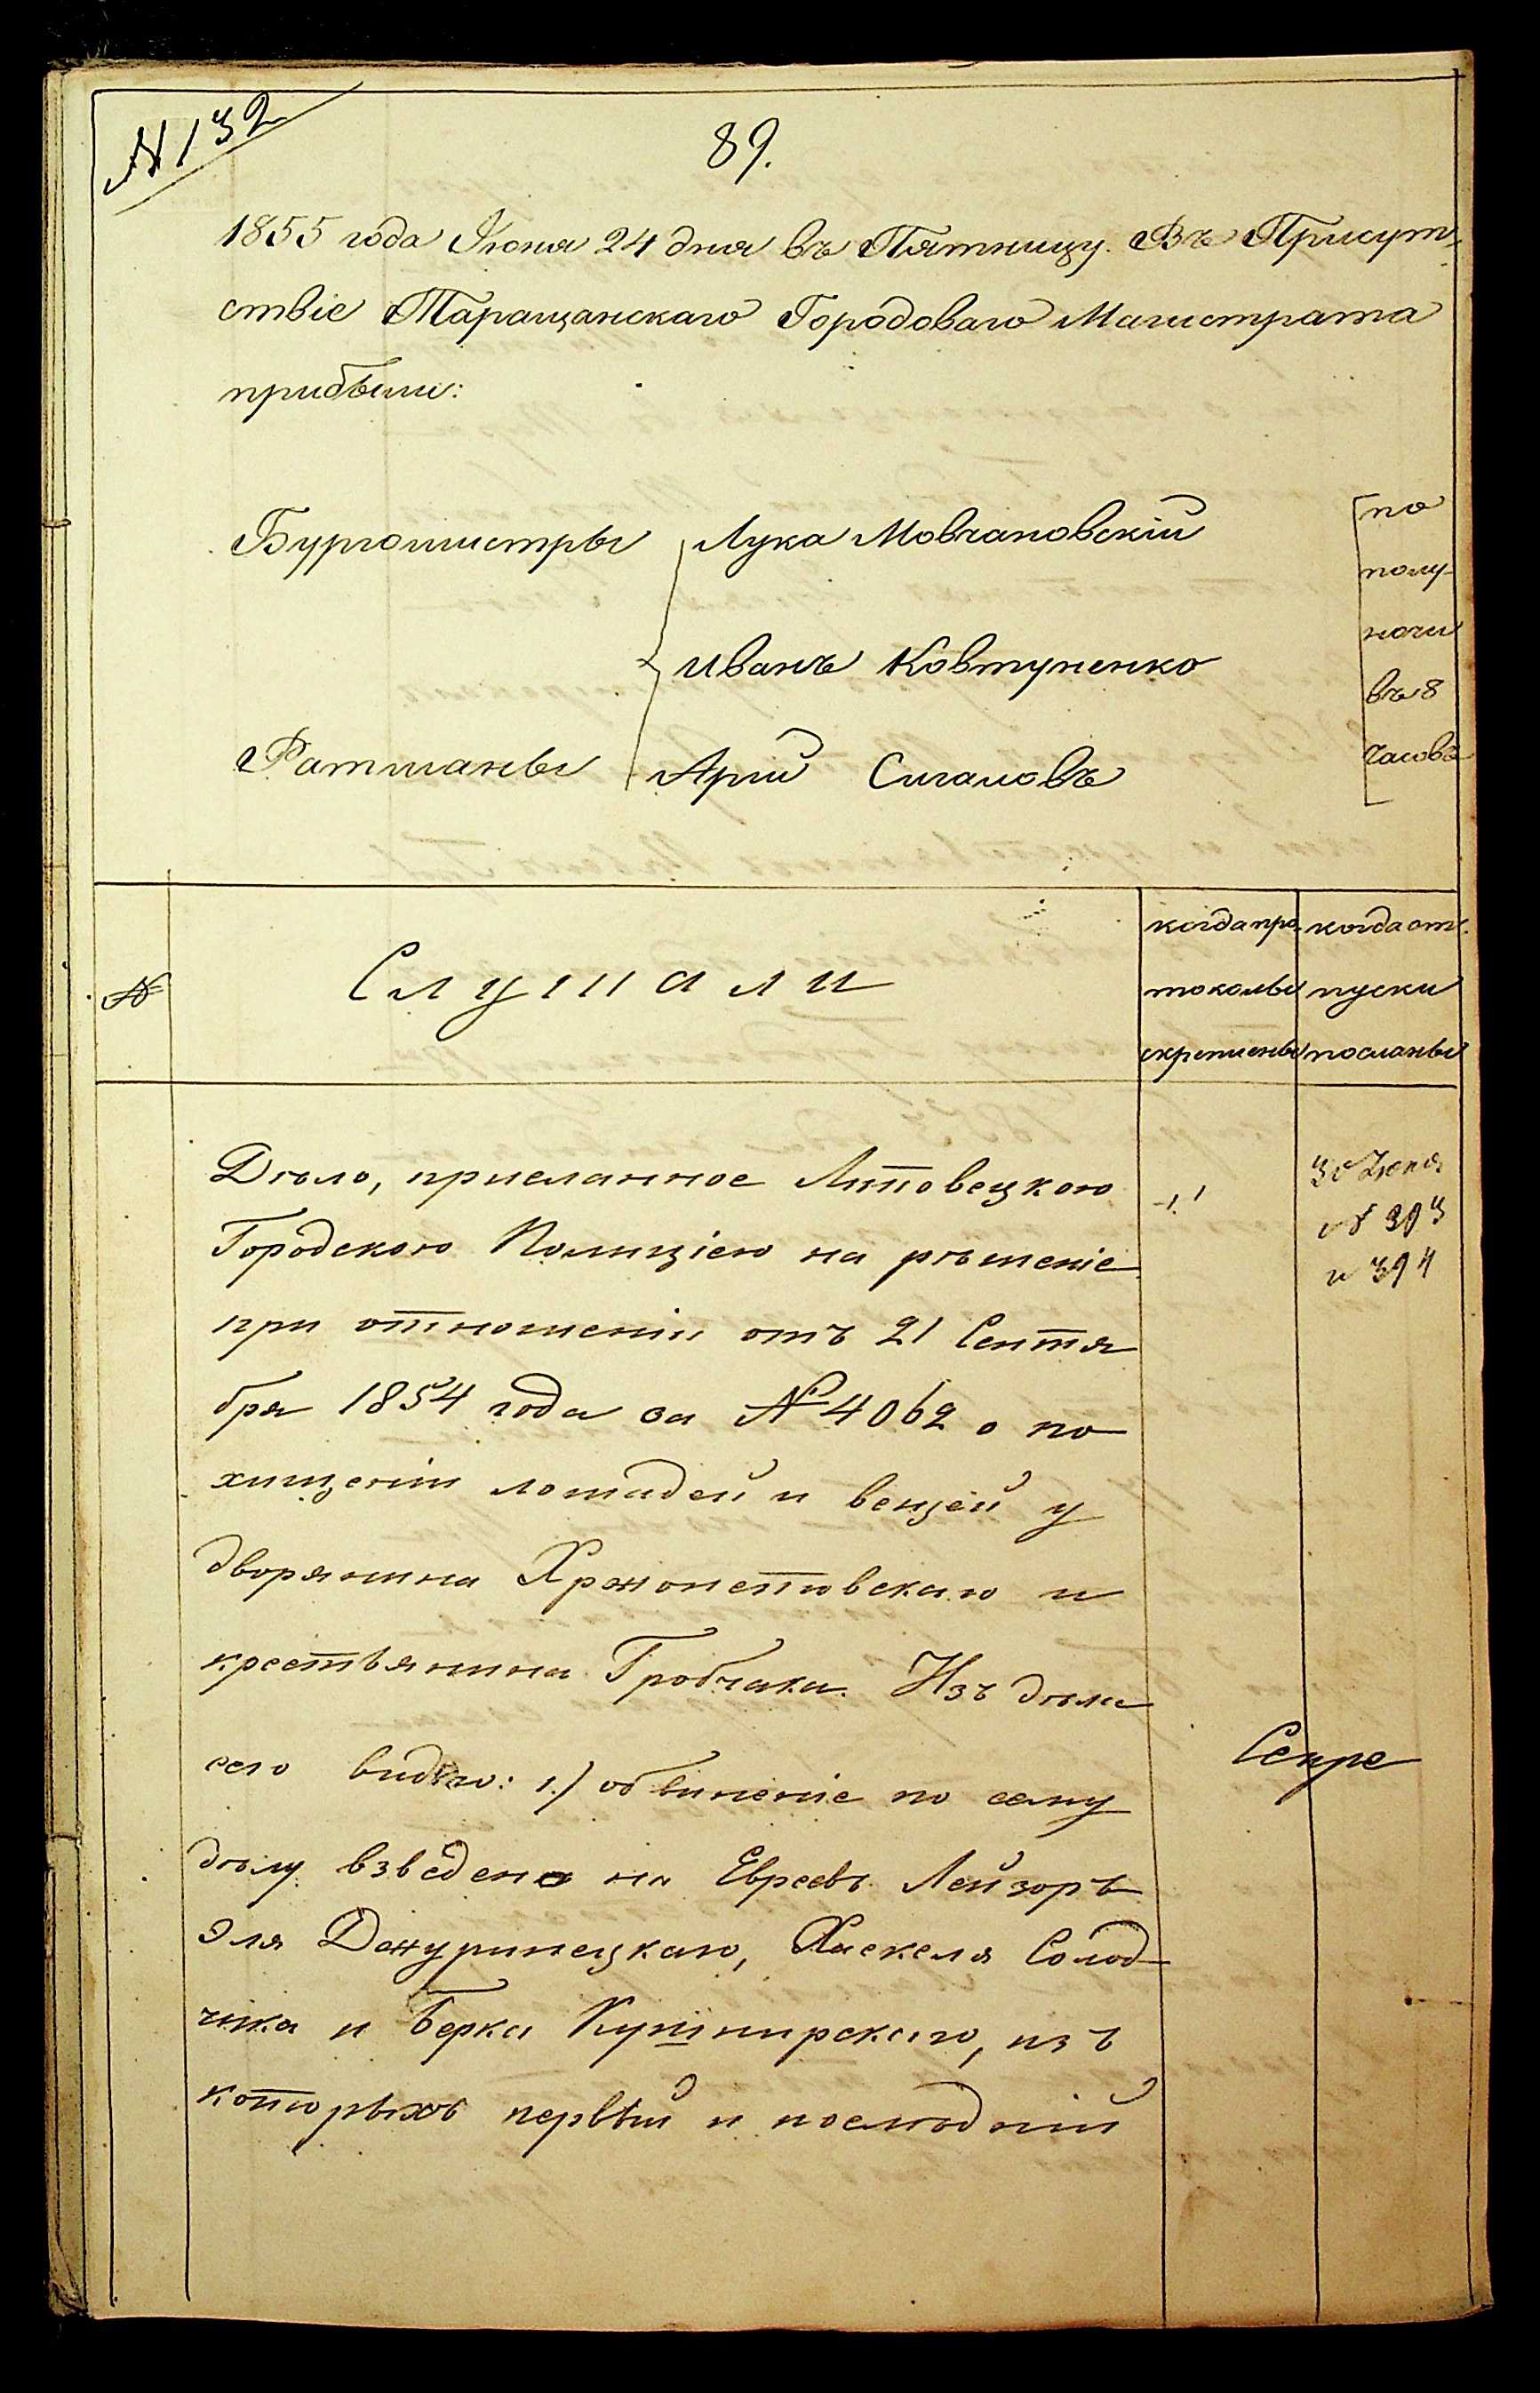 № 132
89.
1855 года Июня 24 дня въ Пятницу. Въ Присут-
ствіе Таращанскаго Городоваго Магистрата
прибыли:
Бургомистры Лука Мовчановскій
Иванъ Ковтуненко
Ратманы Арій Сигаловъ
по
полу-
ночи
въ 8
часовъ
№
Слушали
когда про-
токолы
скреплены
когда от-
пуски
посланы
Дѣло, присланное Липовецкою
Городскою Полиціею на рѣшеніе
при отношеніи отъ 21 Сентя
бря 1854 года за № 4062 о по
хищеніи лошадей и вещей у
дворянина Хржонстовскаго и
крестьянина Гробчака. Изъ дѣла
сего видно: 1.) обвиненіе по сему
дѣлу взведено на Евреевъ Лейзоръ
Эля Дажуринецкаго, Хаскеля Солод-
чика и Берка Кушнирскаго, изъ
которыхъ первый и послѣдній
30 Июня
№ 393
и 394
Секре